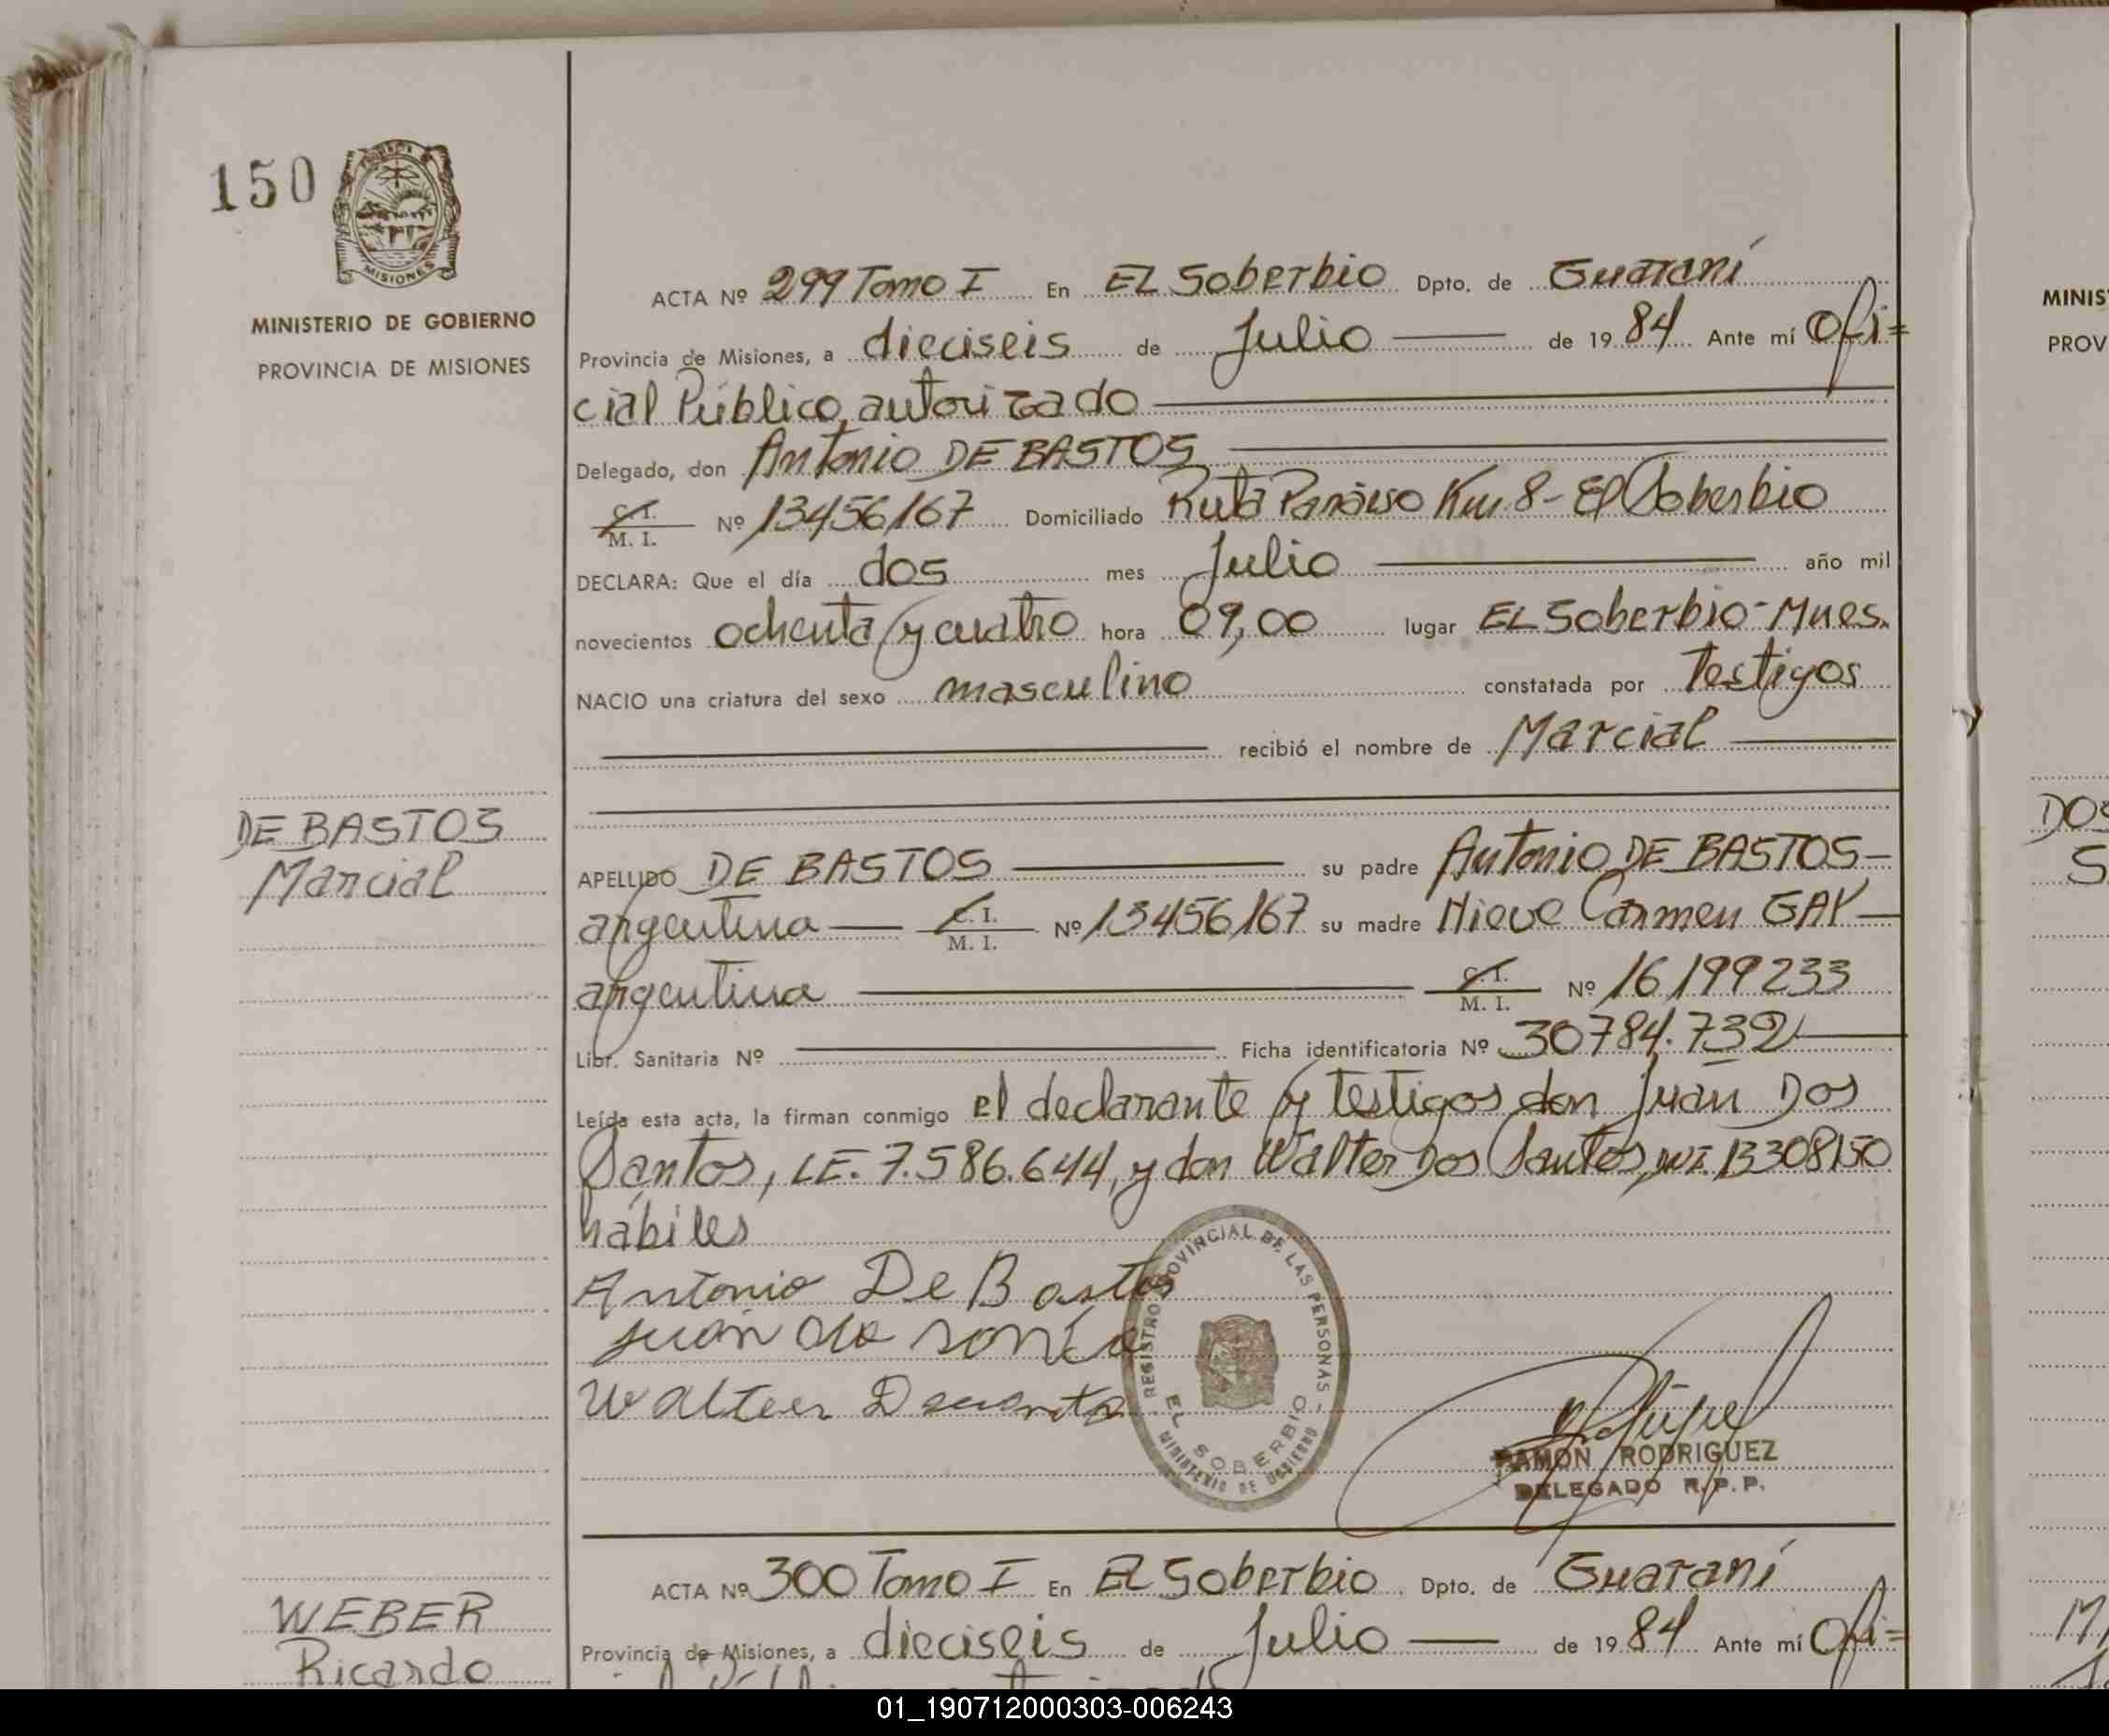 150
MISIONES
MINISTERIO DE GOBIERNO
PROVINCIA DE MISIONES
ACTA Nº 299 Tomo I En EL Soberbio Dpto. de Guaraní
Provincia de Misiones, a dieciseis de Julio de 1984 Ante mí Ofi=
cial Público autorizado
Delegado, don Antonio DE BASTOS
C. I.
M. I. Nº 13456167 Domiciliado Ruta Paraiso Km 8 - El Soberbio
DECLARA: Que el día dos mes Julio año mil
novecientos ochenta y cuatro hora 09,00 lugar EL Soberbio - Mnes.
NACIO una criatura del sexo masculino constatada por Testigos
recibió el nombre de Marcial
DE BASTOS
Marcial
APELLIDO DE BASTOS su padre Antonio DE BASTOS
argentina C. I. M. I. Nº 13456167 su madre Nieve Carmen GAY
argentina C. I. M. I. Nº 16199233
Libr. Sanitaria Nº Ficha identificatoria Nº 30784.732
Leída esta acta, la firman conmigo el declarante y testigos don Juan Dos
Santos, LE. 7.586.644, y don Walter Dos Santos, DNI. 13308150
hábiles
Antonio De Bastos
Juan
Walter
REGISTRO PROVINCIAL DE LAS PERSONAS -
EL SOBERBIO
MINISTERIO DE GOBIERNO
RAMON RODRIGUEZ
DELEGADO R. P. P.
ACTA Nº 300 Tomo I En EL Soberbio Dpto. de Guaraní
WEBER
Ricardo
Provincia de Misiones, a dieciseis de Julio de 1984 Ante mí Ofi=
MINIS
PROV
DOS
S
01_190712000303-006243